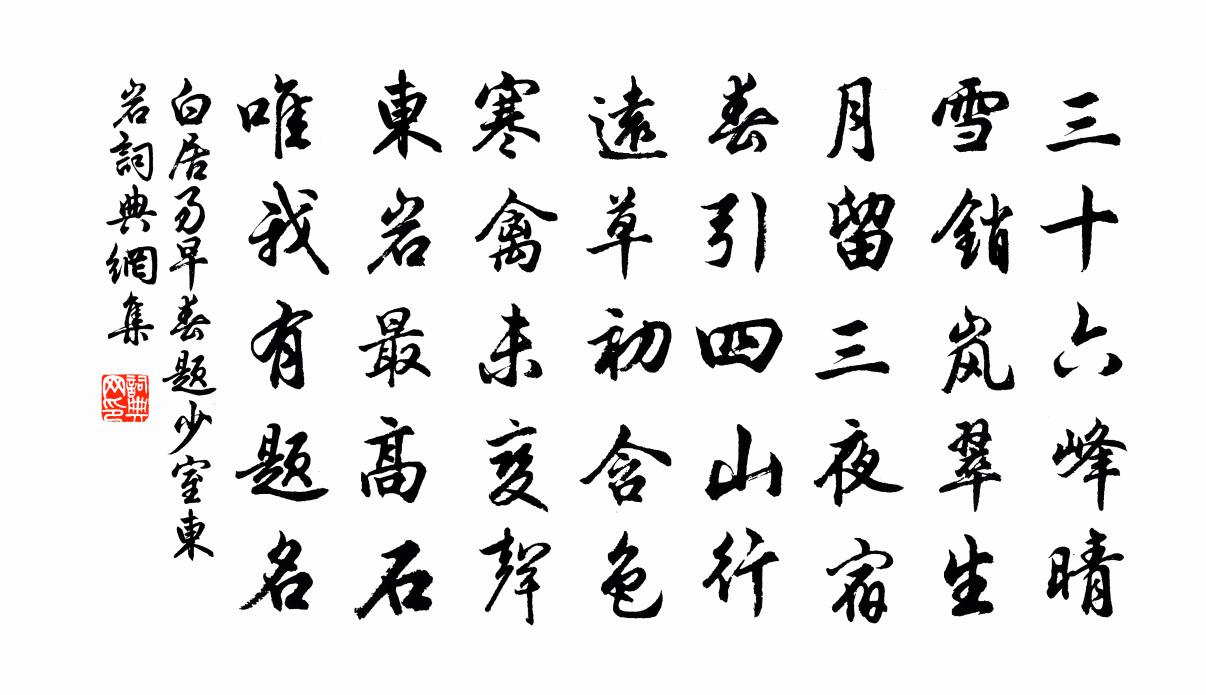 三十六峰晴
雪銷嵐翠生
月留三夜宿
春引四山行
遠草初含色
寒禽未變聲
東岩最高石
唯我有题名
白居易早春题少室東
岩詞典網集
詞典
网印